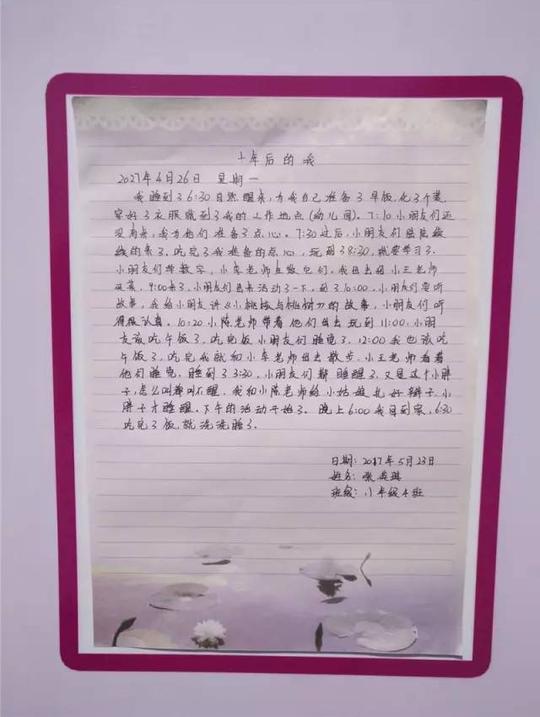 十年后的我
2027年4月26日 星期一
我睡到了6:30自然醒来,为我自己准备了早饭,化了个妆
穿好了衣服就到了我的工作地点(幼儿园)。7:10小朋友们还
没有来,我为他们准备了点心。7:30过后,小朋友们陆陆续
续的来了,吃完了我准备的点心,玩到了8:30,就要学习了。
小朋友们学数学,小车老师在教它们,我回去给小王老师
9:00来了,小朋友们出来活动了一下,到了10:00,小朋友们要听
故事,我给小朋友讲《小桃核与桃树》的故事,小朋友们听
得很认真,10:20小陈老师带着他们出去玩到11:00,小朋
友该吃午饭了,吃完饭小朋友们睡觉了,12:00我也该吃
午饭了,吃完我就和小车老师出去散步,小王老师看着
他们睡觉,睡到了3:30,小朋友们都睡醒了,又是这个小胖
子,怎么叫都叫不醒,我和小陈老师给小姑娘扎好辫子,小
胖子才睡醒,下午的活动开始了。晚上6:00我回到家,6:30
吃完了饭,就洗洗睡了。
日期:2017年5月23日
姓名:张
班级:八年级4班